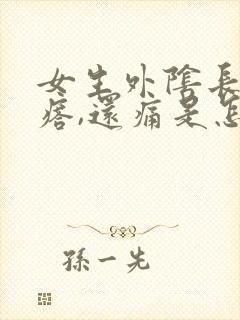 女生外陰長
瘩,還痛是怎
孫一先